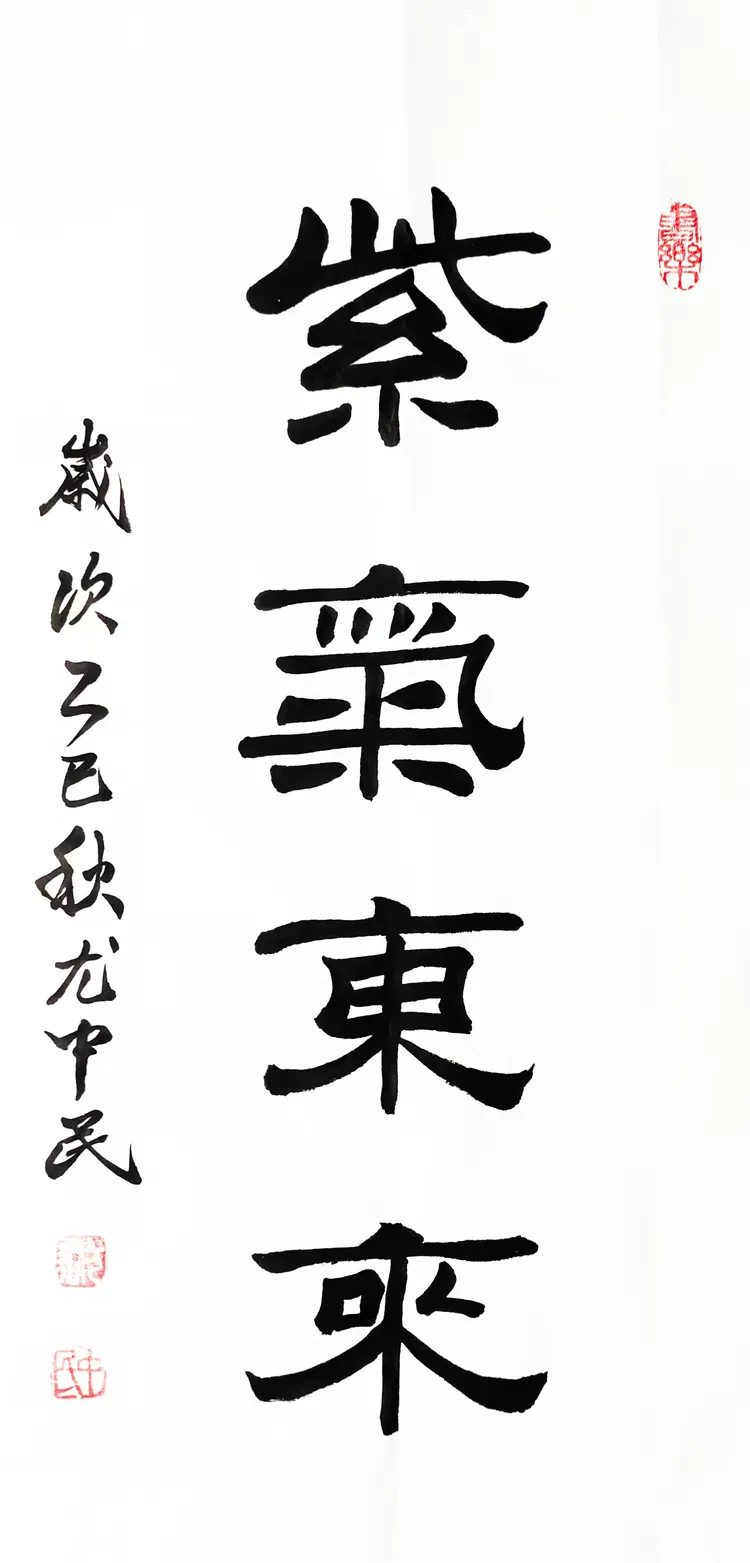 紫氣東來
歲次乙巳秋尤中民